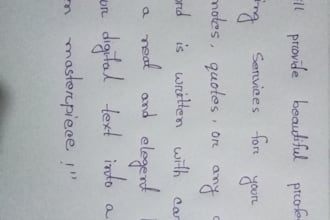 ill provide beautiful profe
ing services for your
notes, quotes, or any
ord is written with car
a neat and elegent
our digital text into a
n masterpiece!"